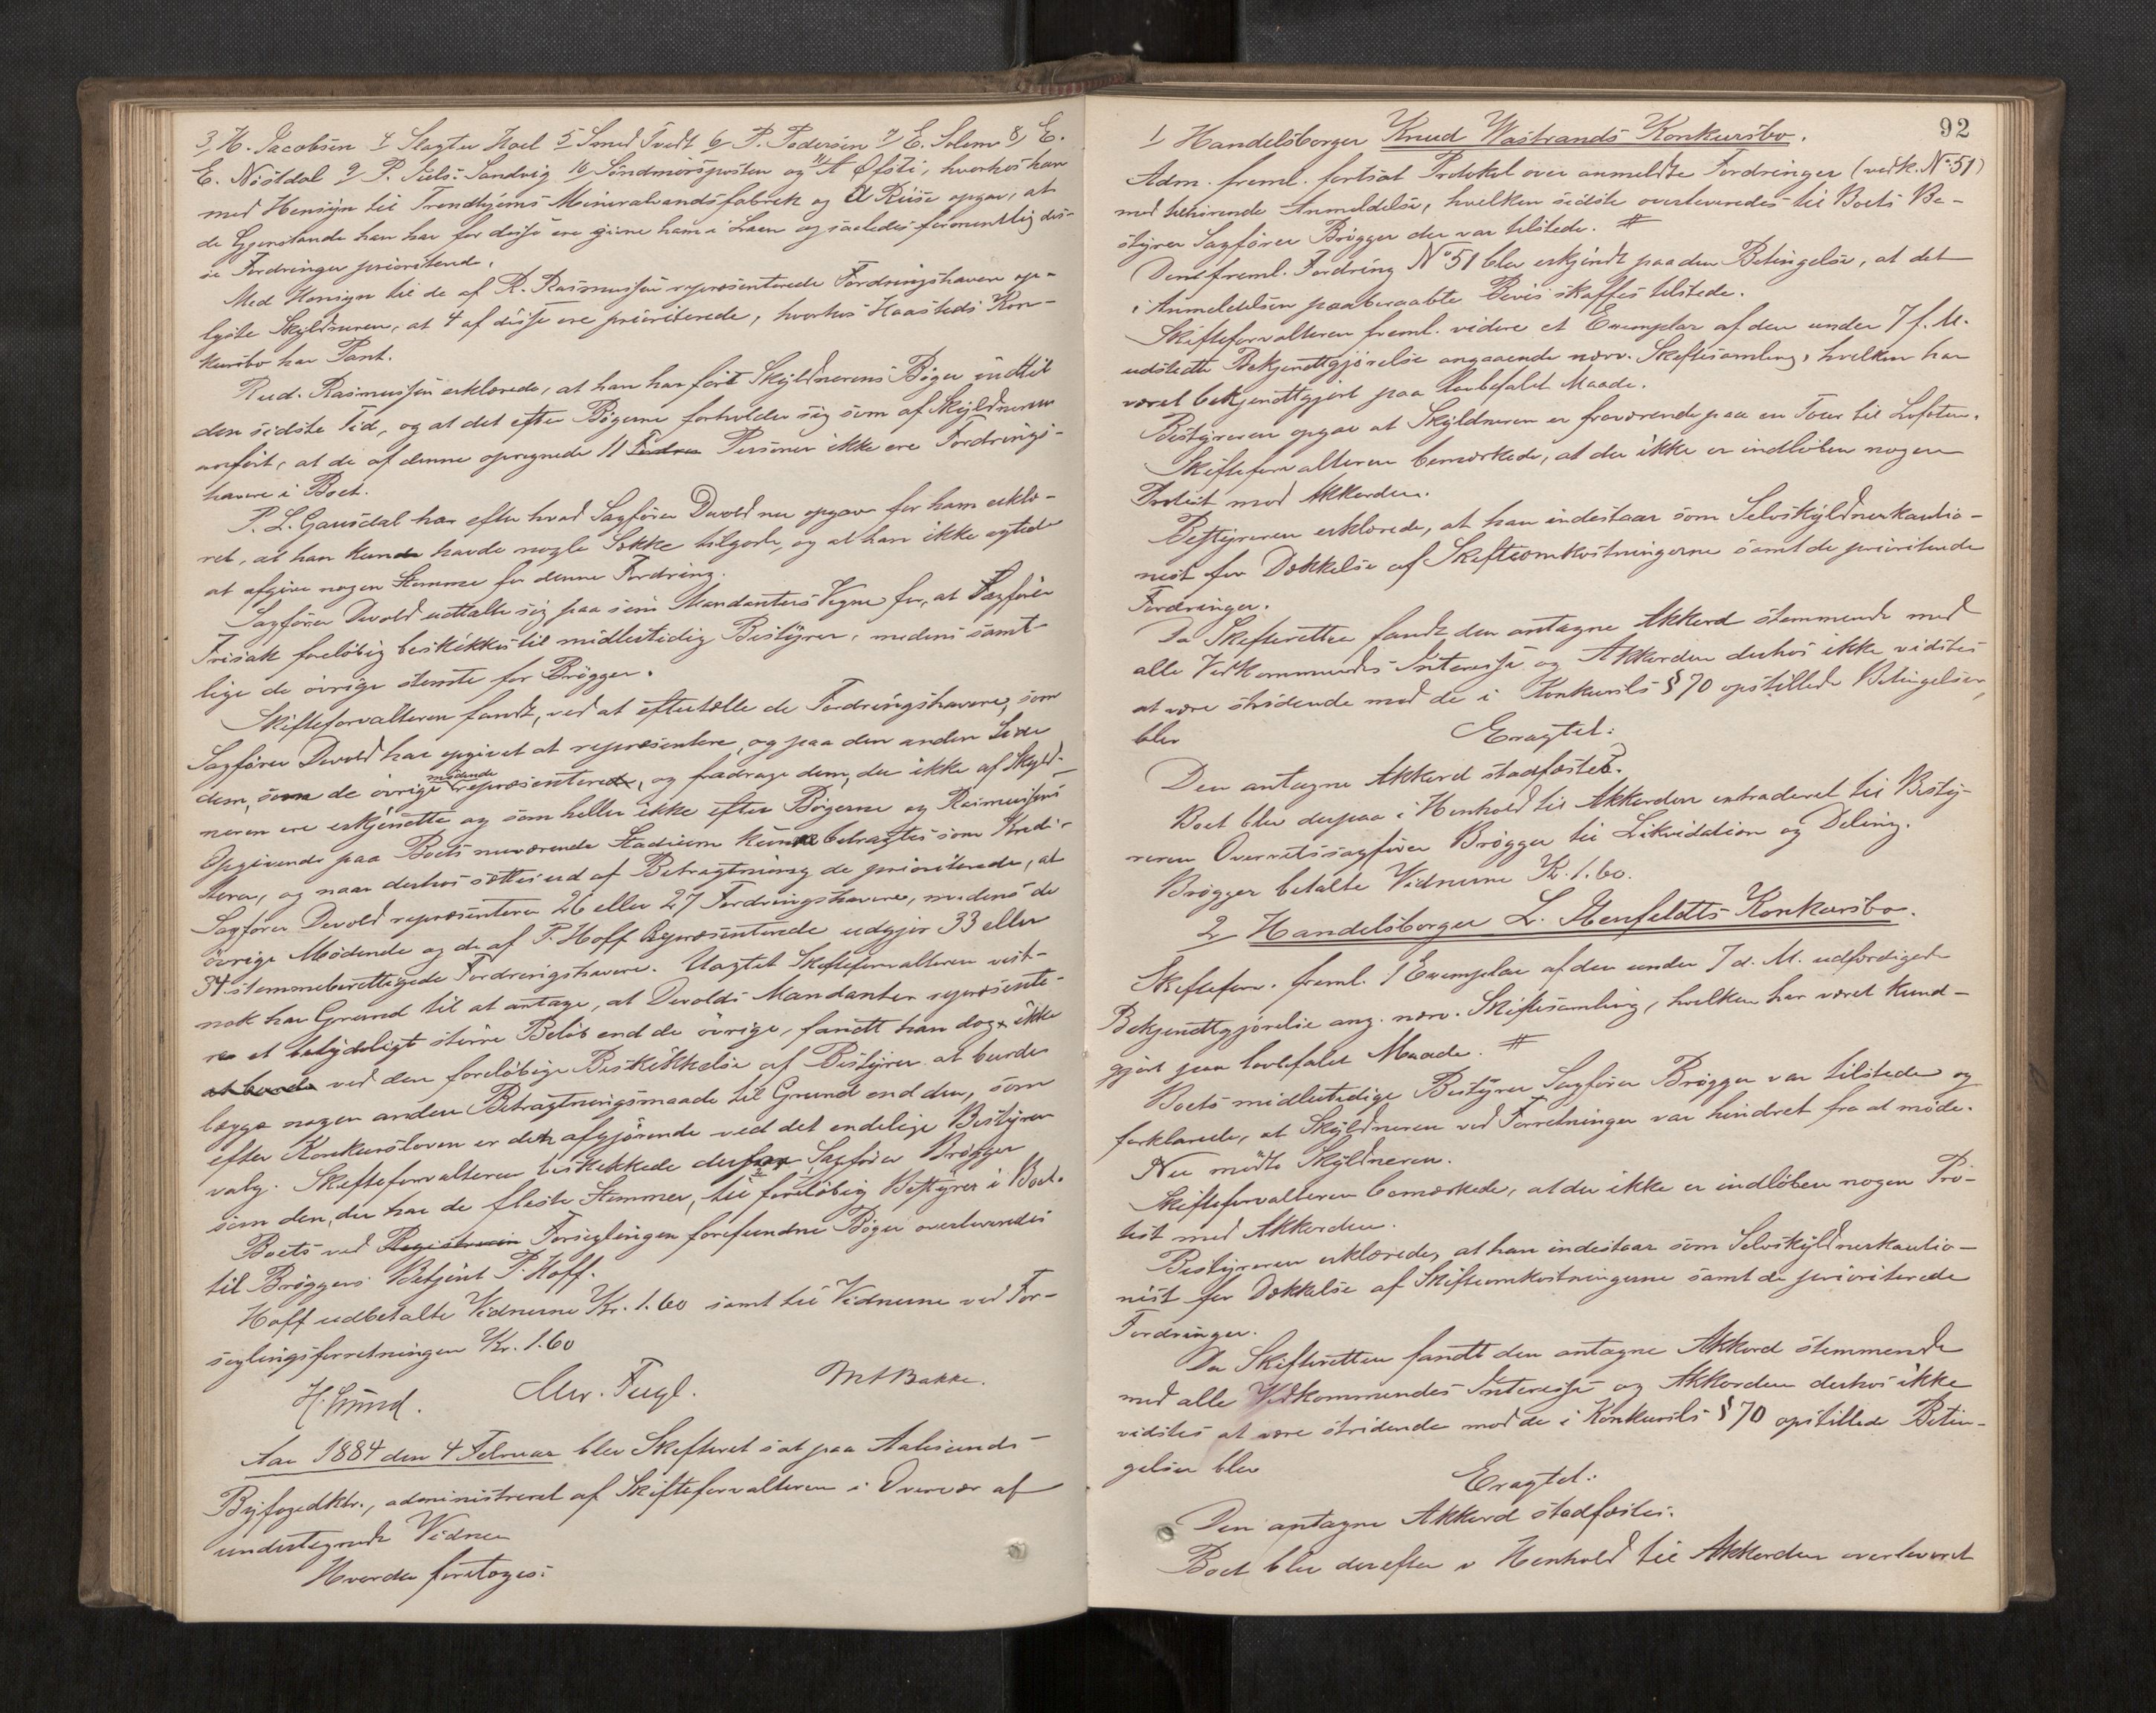 3, H. Jacobsen 4 Slagter Hoel 5 Smed Tvedt 6, P. Pedersen 7, E. Solem 8, E.
E. Nøstdal 9 P. Juls. Sandvig 10 Söndmörsposten og 11, A Øfsti, hvorhos han
med Hensyn til Trondhjems Mineralvandsfabrik og A Riise opgav, at
de Gjenstande han har for disse ere givne ham i Laan og saaledes formentlig dis-
se Fordringer prioriterede.
Med Hensyn til de af R. Rasmussen repræsenterede Fordringshavere op-
lyste Skyldneren, at 4 af disse ere prioriterede, hvorhos Haasteds Kon-
kursbo har Pant.
Rud. Rasmussen erklærede, at han har fört Skyldnerens Böger indtil
den sidste Tid, og at det efter Bögerne forholder sig som af Skyldneren
anfört, at de af denne opregnede 11 Personer ikke ere Fordrings-
havere i Boet.
P. L. Gausdal har efter hvad Sagförer Devold nu opgav for ham erklæ-
ret, at han kun havde nogle Sække tilgode, og at han ikke agtede
at afgive nogen Stemme for denne Fordring.
Sagförer Devold udtalte sig paa sine Mandanters Vegne for, at Sagförer
Frisak forelöbig beskikkes til midlertidig Bestyrer, medens samt-
lige de övrige stemte for Brögger.
Skifteforvalteren fandt, ved at eftertælle de Fordringshavere, som
Sagförer Devold har opgivet at repræsentere, og paa den anden Side
dem, som de övrige mödende repræsenterer, og fradrage dem, der ikke af Skyld-
neren ere erkjendte og som heller ikke efter Bögerne og Rasmussens
Opgivende paa Boets nuværende Stadium kunne betragtes som Kredi-
torer, og naar derhos sættes ud af Betragtning de prioriterede, at
Sagförer Devold repræsenterer 26 eller 27 Fordringshavere, medens de
övrige Mödende og de af P. Hoff Repræsenterede udgjör 33 eller
34 stemmeberettigede Fordringshavere. Uagtet Skifteforvalteren vist-
nok har Grund til at antage, at Devolds Mandanter repræsente-
rer et betydeligt större Belöb end de övrige, fandt han dog ikke
at burde ved den forelöbige Beskikkelse af Bestyrer at burde
lægge nogen anden Betragtningsmaade til Grund end den, som
efter Konkursloven er den afgjörende ved det endelige Bestyrer
valg. Skifteforvalteren beskikkede derfor Sagförer Brögger
som den, der har de fleste Stemmer, til forelöbig Bestyrer i Boet.
Boets ved Registrerin Forseglingen forefundne Böger overleveredes
til Bröggers Betjent P. Hoff.
Hoff udbetalte Vidnerne Kr. 1.60 samt til Vidnerne ved For-
seglingsforretningen Kr. 1.60
H. Lund. Chr. Fugl. M A Bakke.
Aar 1884 den 4 Februar blev Skifteret sat paa Aalesunds
Byfogedktr., administreret af Skifteforvalteren i Overvær af
undertegnede Vidner
Hvorda foretoges:
92
1 Handelsborger Knud Wastrands Konkursbo.
Adm. freml. fortsat Protokol over anmeldte Fordringer (vedk. No. 51)
med tilhörende Anmeldelse, hvilken sidste overleveredes til Boets Be-
styrer Sagförer Brögger der var tilstede. #
Den freml. Fordring No 51 blev erkjendt paa den Betingelse, at det
i Anmeldelsen paaberaabte Bevis skaffes tilstede.
Skifteforvalteren freml. videre et Exemplar af den under 7 f. M.
udstedte Bekjendtgjörelse angaaende nærv. Skiftesamling, hvilken har
været bekjendtgjort paa lovbefalet Maade.
Bestyreren opgav at Skyldneren er fraværende paa en Tour til Lofoten.
Skifteforvalteren bemærkede, at der ikke er indlöben nogen
Protest mod Akkorden.
Bestyreren erklærede, at han indestaar som Selvskyldnerkautio-
nist for Dækkelse af Skifteomkostningerne samt de prioriterede
Fordringer.
Da Skifteretten fandt den antagne Akkord stemmende med
alle Vedkommendes Interesse og Akkorden derhos ikke vidstes
at være stridende mod de i Konkursls § 70 opstillede Betingelser,
blev
Eragtet:
Den antagne Akkord stadfæstes.
Boet blev derpaa i Henhold til Akkorden extraderet til Besty-
reren Overretssagförer Brögger til Likvidation og Deling.
Brögger betalte Vidnerne Kr. 1.60.
2 Handelsborger L. Henfeldts Konkursbo.
Skifteforv. freml. 1 Exemplar af den under 7 d. M. udfærdigede
Bekjendtgjörelse ang. nærv. Skiftesamling, hvilken har været kund-
gjort paa lovbefalet Maade. #
Boets midlertidige Bestyrer Sagförer Brögger var tilstede og
forklarede, at Skyldneren ved Forretninger var hindret fra at möde.
Nu mödte Skyldneren.
Skifteforvalteren bemærkede, at der ikke er indlöben nogen Pro-
test mod Akkorden.
Bestyreren erklærede, at han indestaar som Selvskyldnerkautio-
nist for Dækkelse af Skifteomkostningerne samt de prioriterede
Fordringer.
Da Skifteretten fandt den antagne Akkord stemmende
med alle Vedkommendes Interesse og Akkorden derhos ikke
vidstes at være stridende mod de i Konkursls § 70 opstillede Betin-
gelser blev
Eragtet:
Den antagne Akkord stadfæstes.
Boet blev derefter i Henhold til Akkorden overleveret